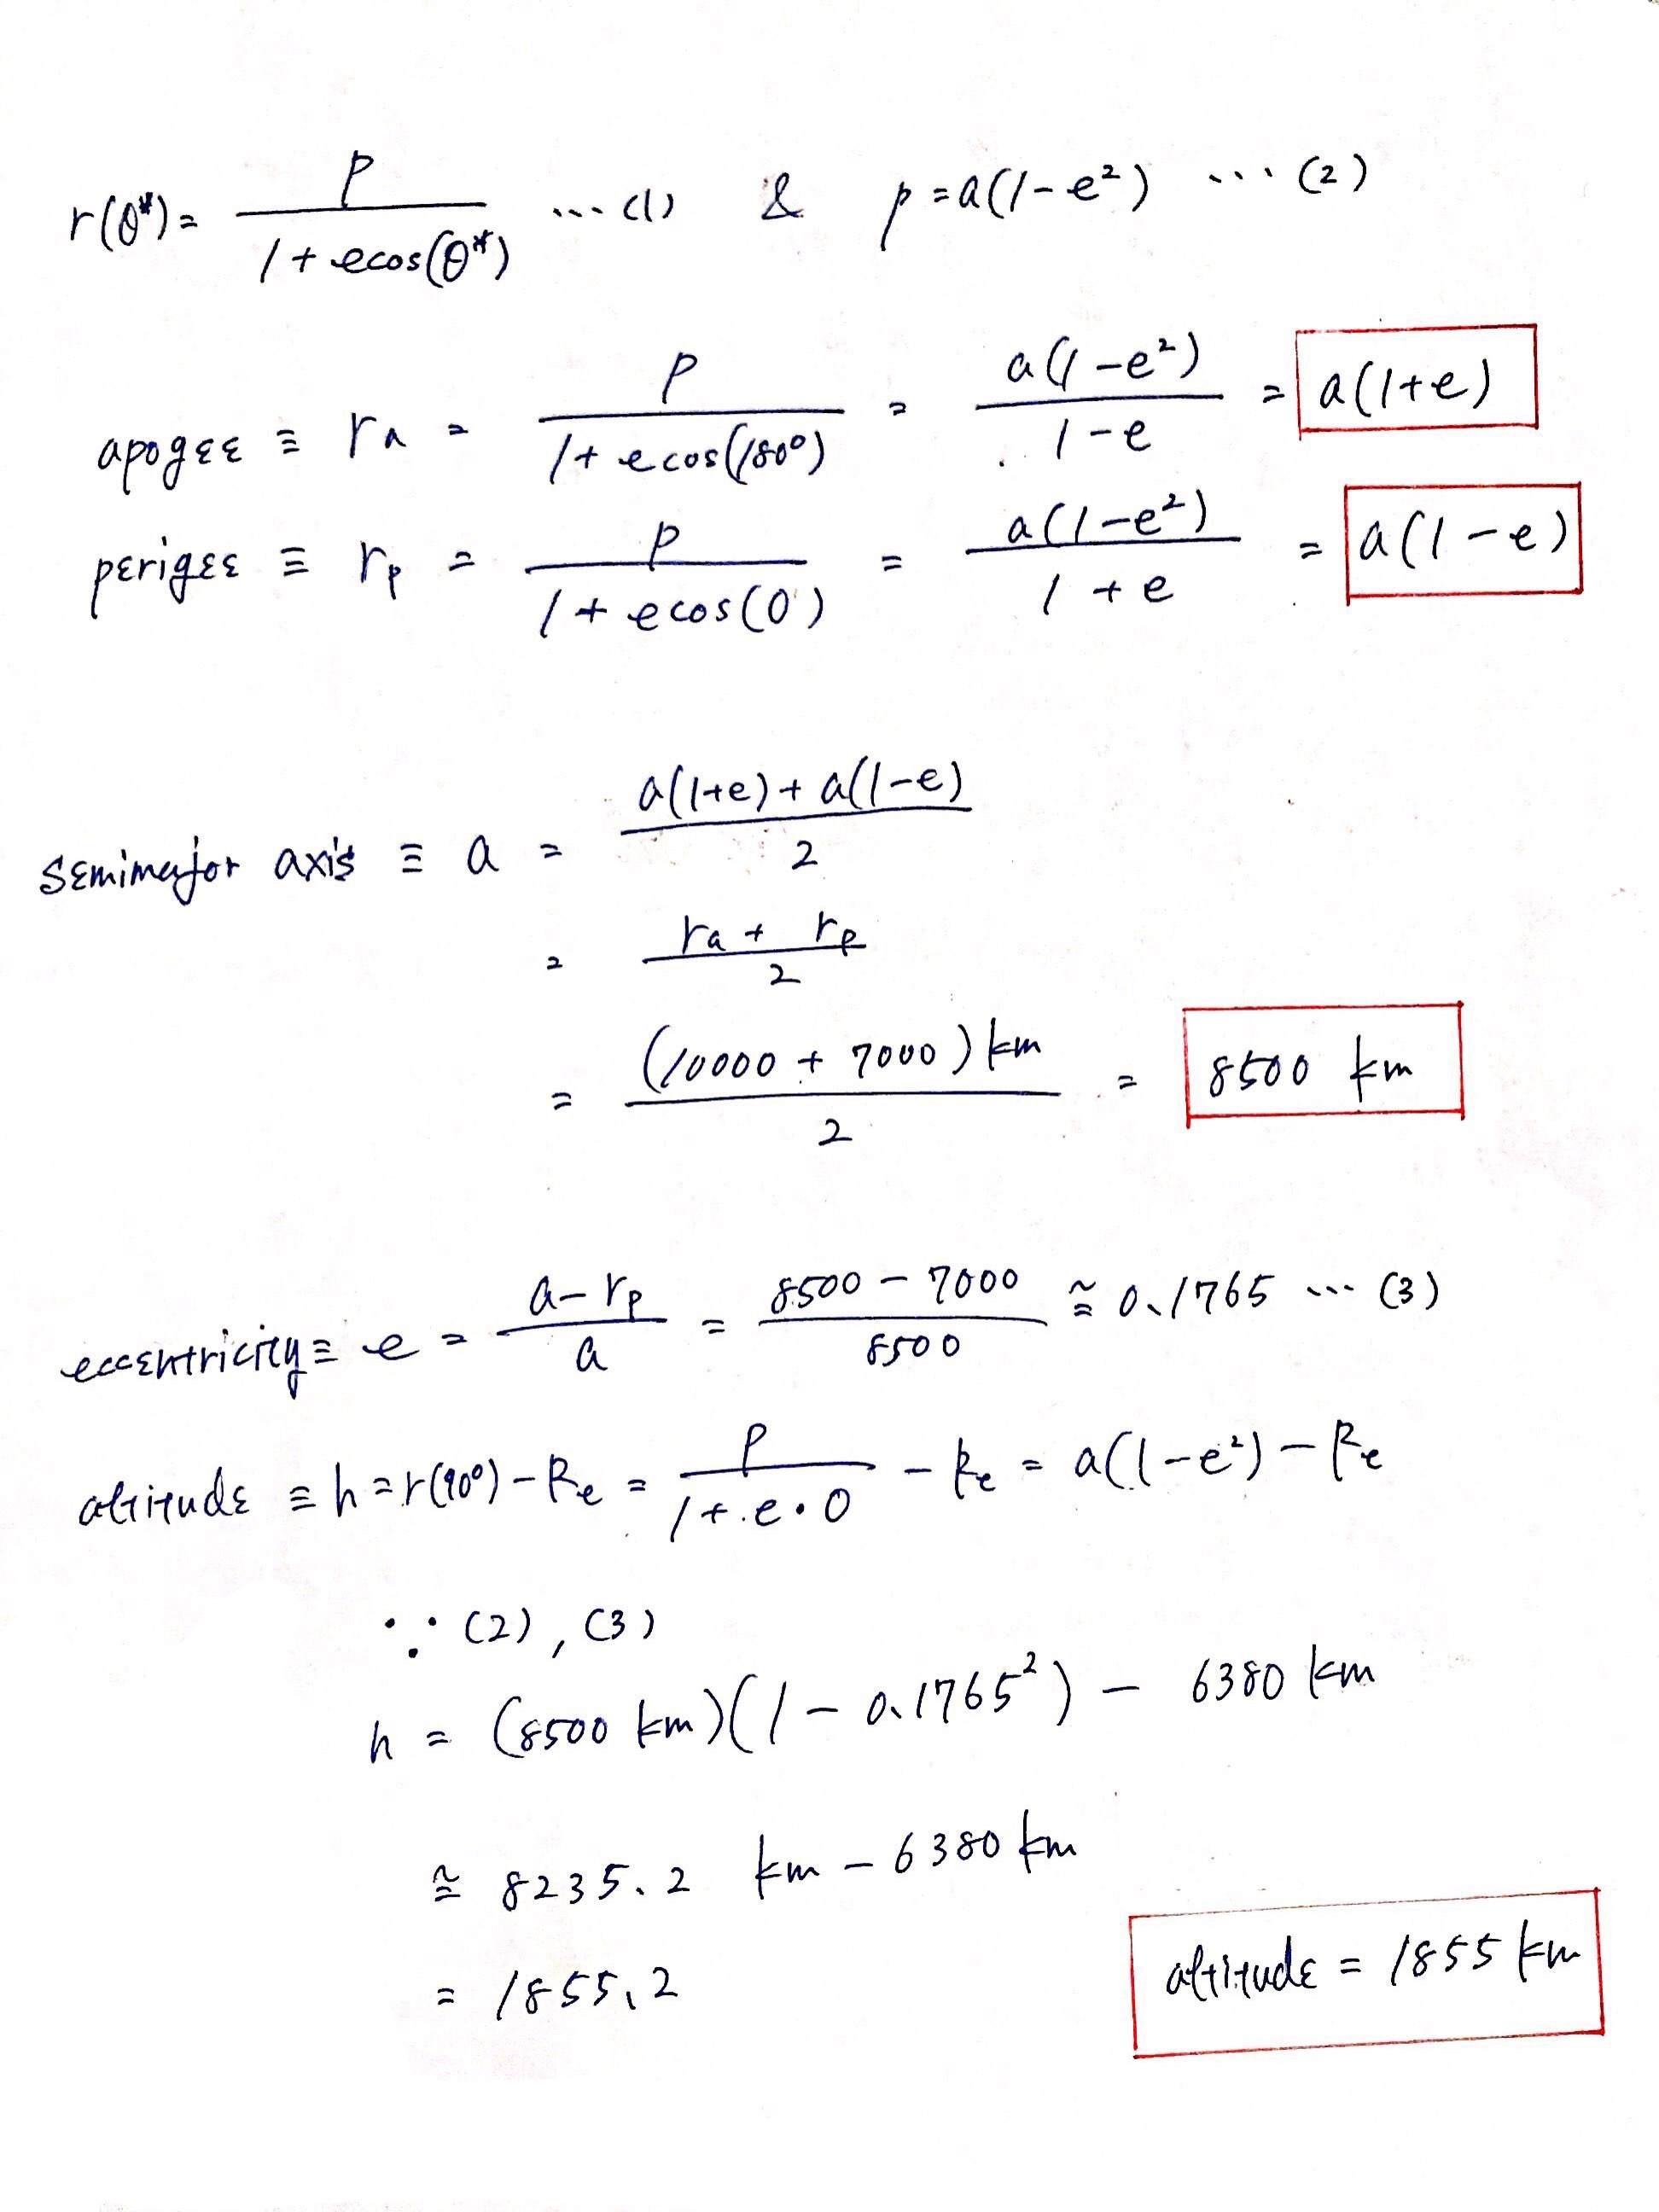 r(θ*) = p / (1 + ecos(θ*)) ... (1) & p = a(1-e²) ... (2)
apogee ≡ ra = p / (1 + ecos(180°)) = a(1-e²) / (1-e) = a(1+e)
perigee ≡ rp = p / (1 + ecos(0°)) = a(1-e²) / (1+e) = a(1-e)
semimajor axis ≡ a = (a(1+e) + a(1-e)) / 2
= (ra + rp) / 2
= (10000 + 7000) km / 2 = 8500 km
eccentricity ≡ e = (a - rp) / a = (8500 - 7000) / 8500 ≅ 0.1765 ... (3)
altitude ≡ h = r(90°) - Re = p / (1 + e · 0) - Re = a(1-e²) - Re
∵ (2), (3)
h = (8500 km)(1 - 0.1765²) - 6380 km
≅ 8235.2 km - 6380 km
= 1855.2
altitude = 1855 km